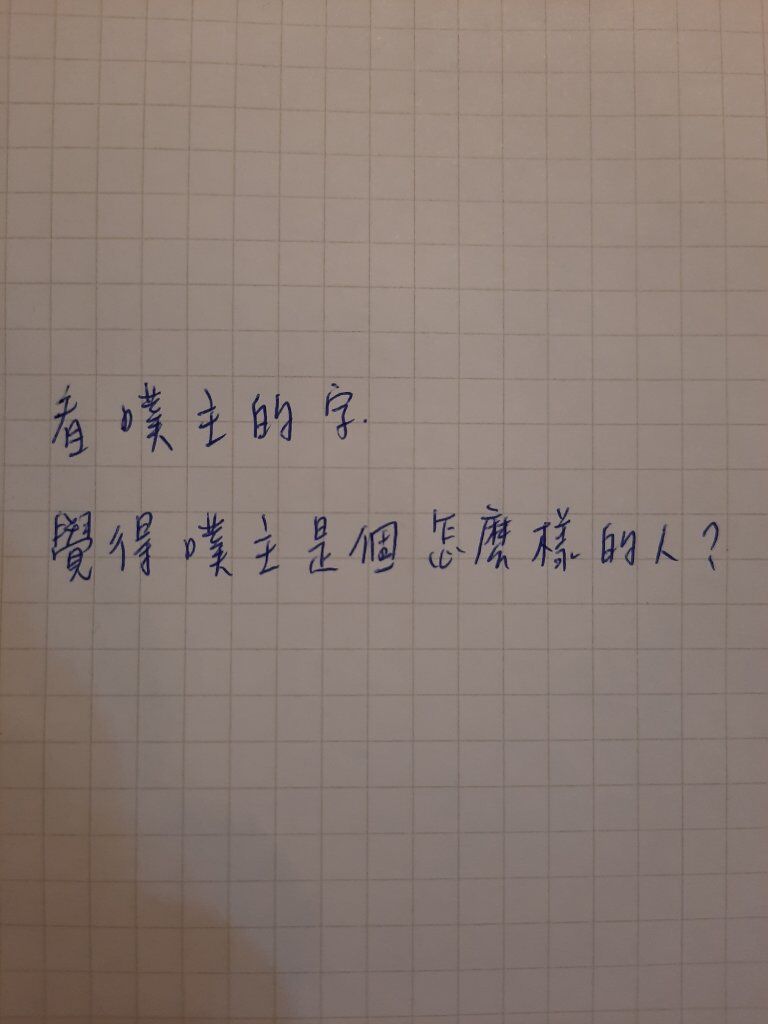 看噗主的字.
覺得噗主是個怎麼樣的人?